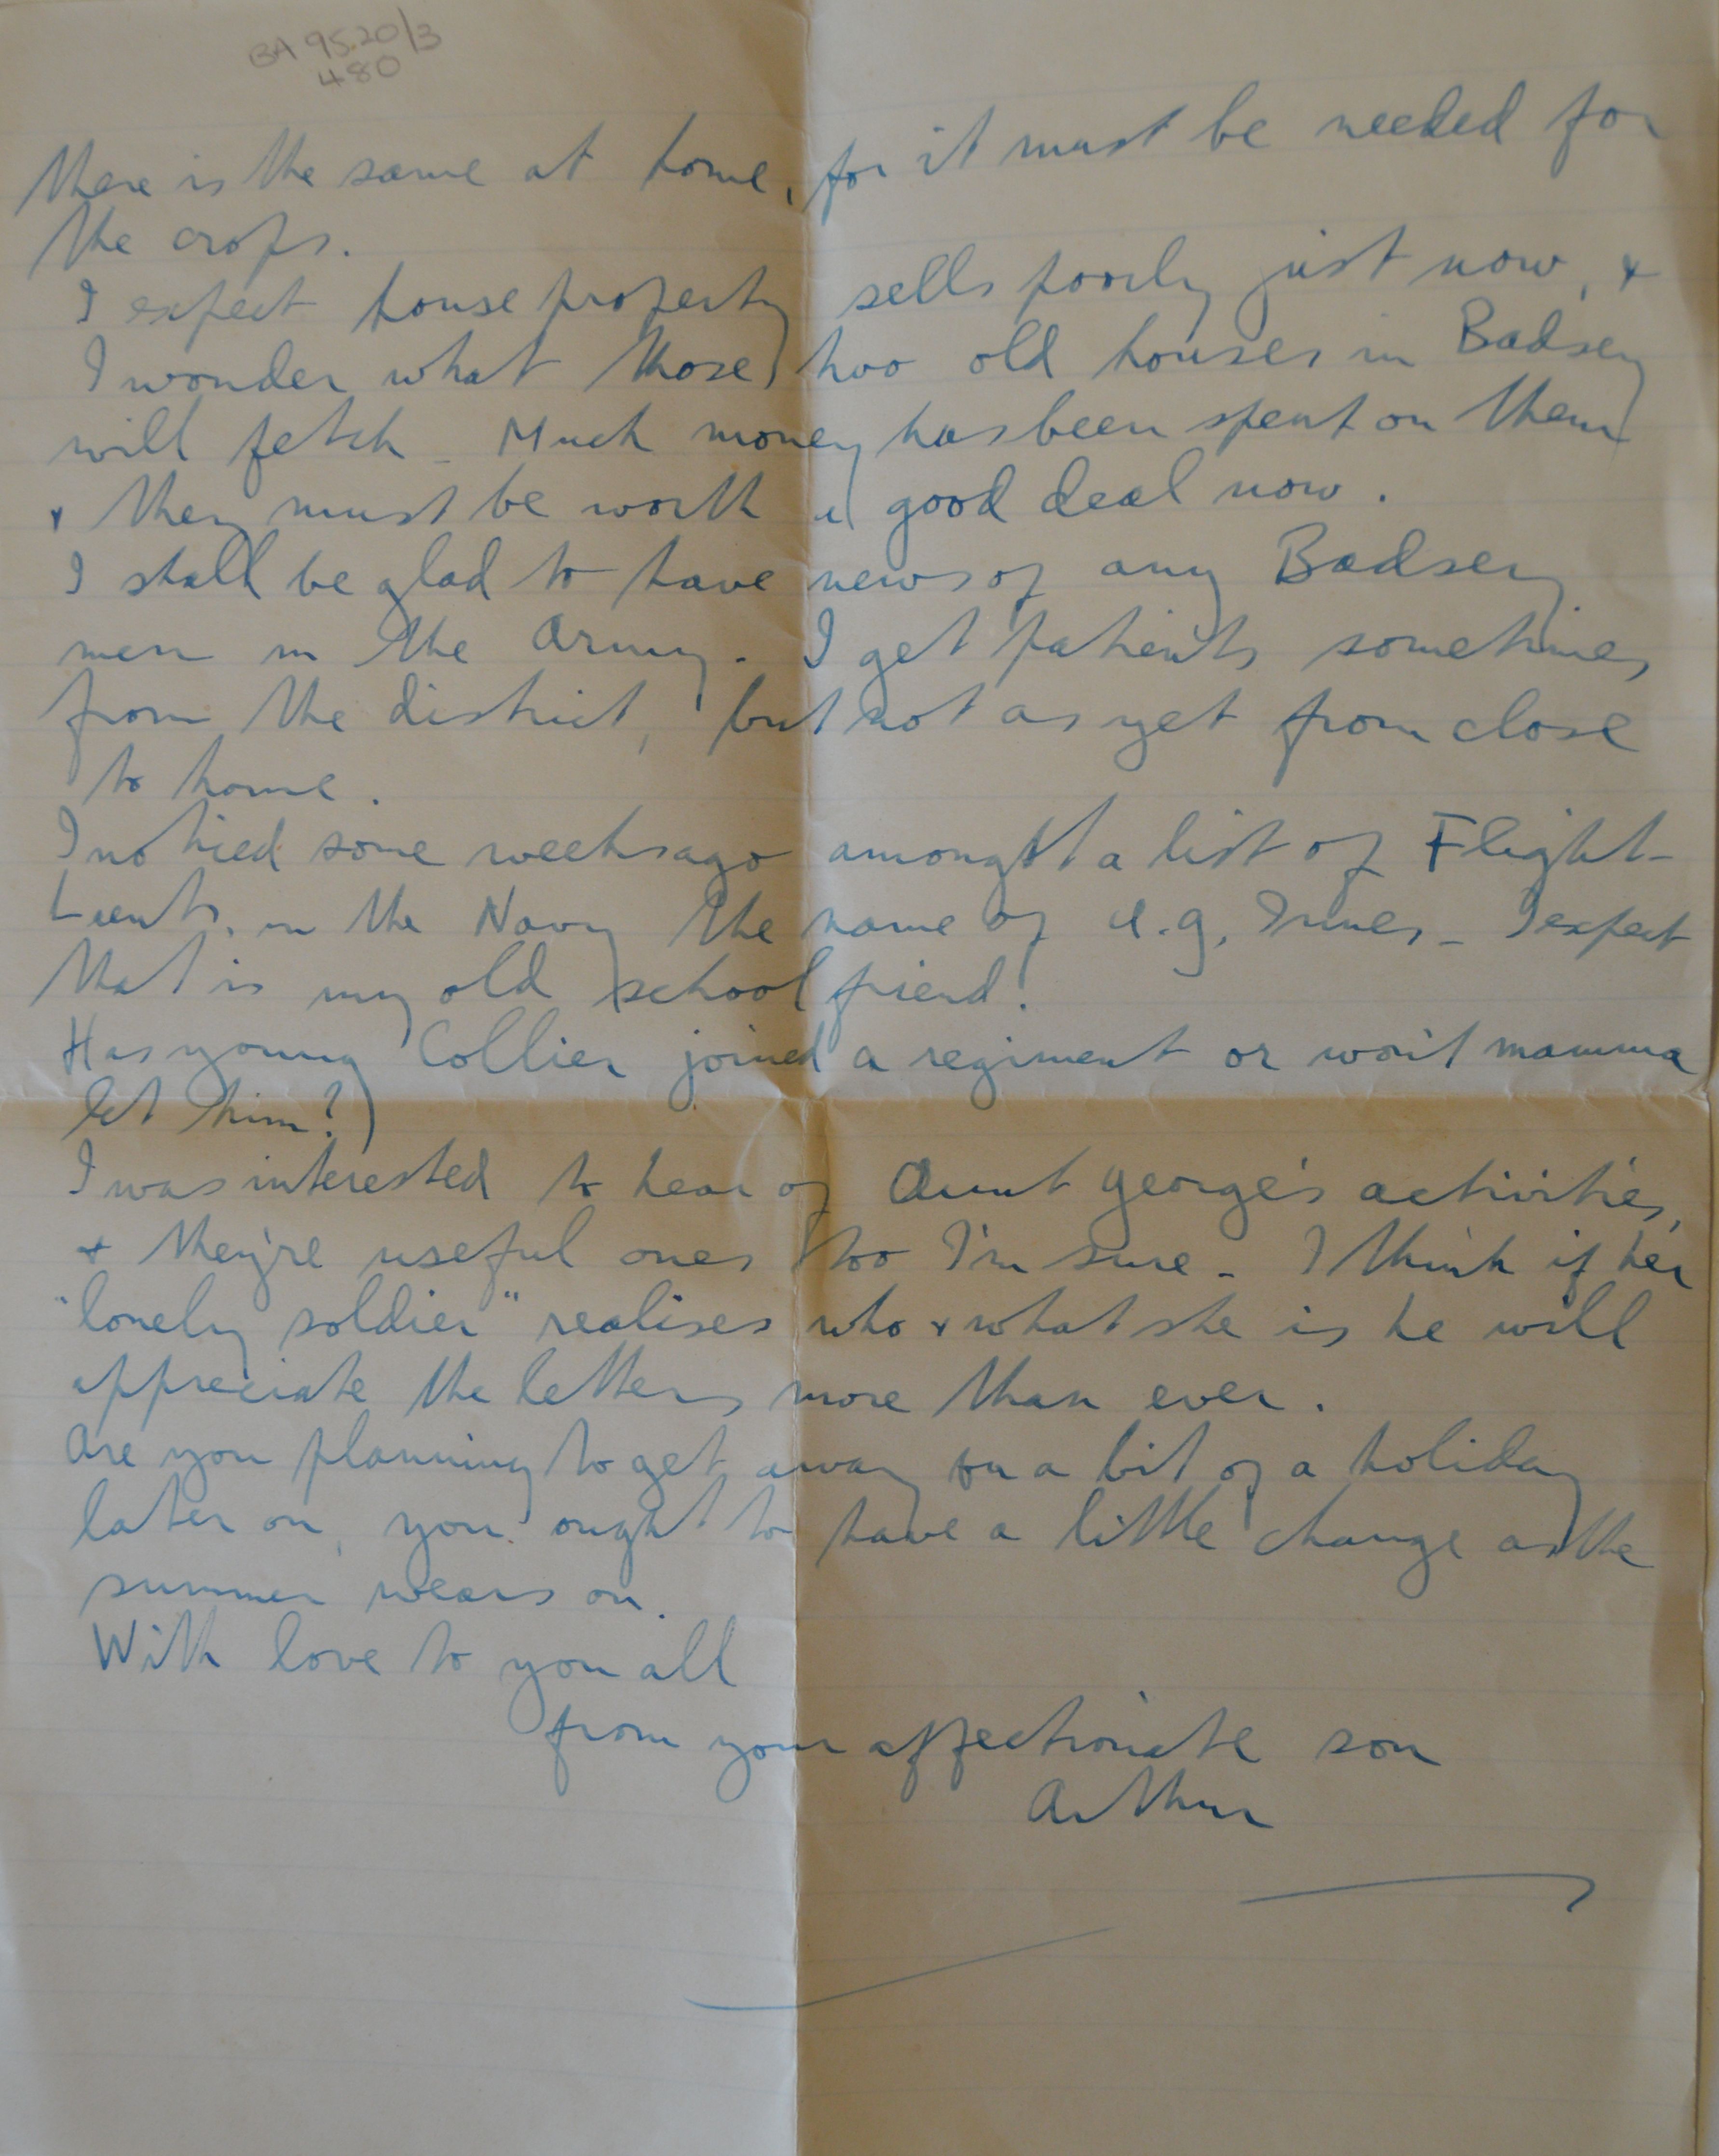 BA 9520/3
480
there is the same at home, for it must be needed for
the crops.
I expect house property sells poorly just now, &
I wonder what those two old houses in Badsey
will fetch - Much money has been spent on them
& they must be worth a good deal now.
I shall be glad to have news of any Badsey
men in the Army. I get patients sometimes
from the district, but not as yet from close
to home.
I noticed some weeks ago amongst a list of Flight-
Lieuts. in the Navy the name of G. Innes - I expect
that is my old school friend!
Has young Collier joined a regiment or won't mamma
let him?
I was interested to hear of Aunt George's activities,
& they're useful ones too I'm sure - I think if her
"lonely soldier" realises who & what she is he will
appreciate the letters more than ever.
Are you planning to get away on a bit of a holiday
later on, you ought to have a little change as the
summer wears on.
With love to you all
from your affectionate son
Arthur